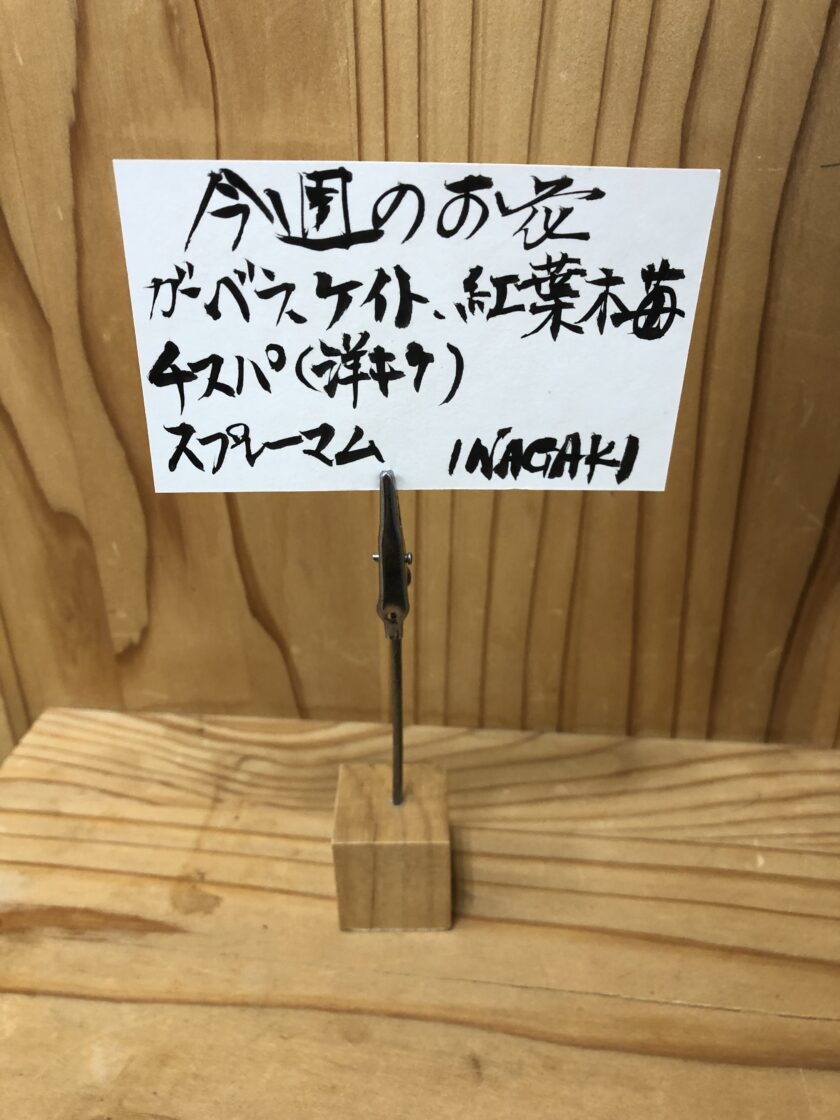 今週のお花
ガーベラ、ケイト、紅葉木苺
チスパ(洋キク)
スプレーマム INAGAKI